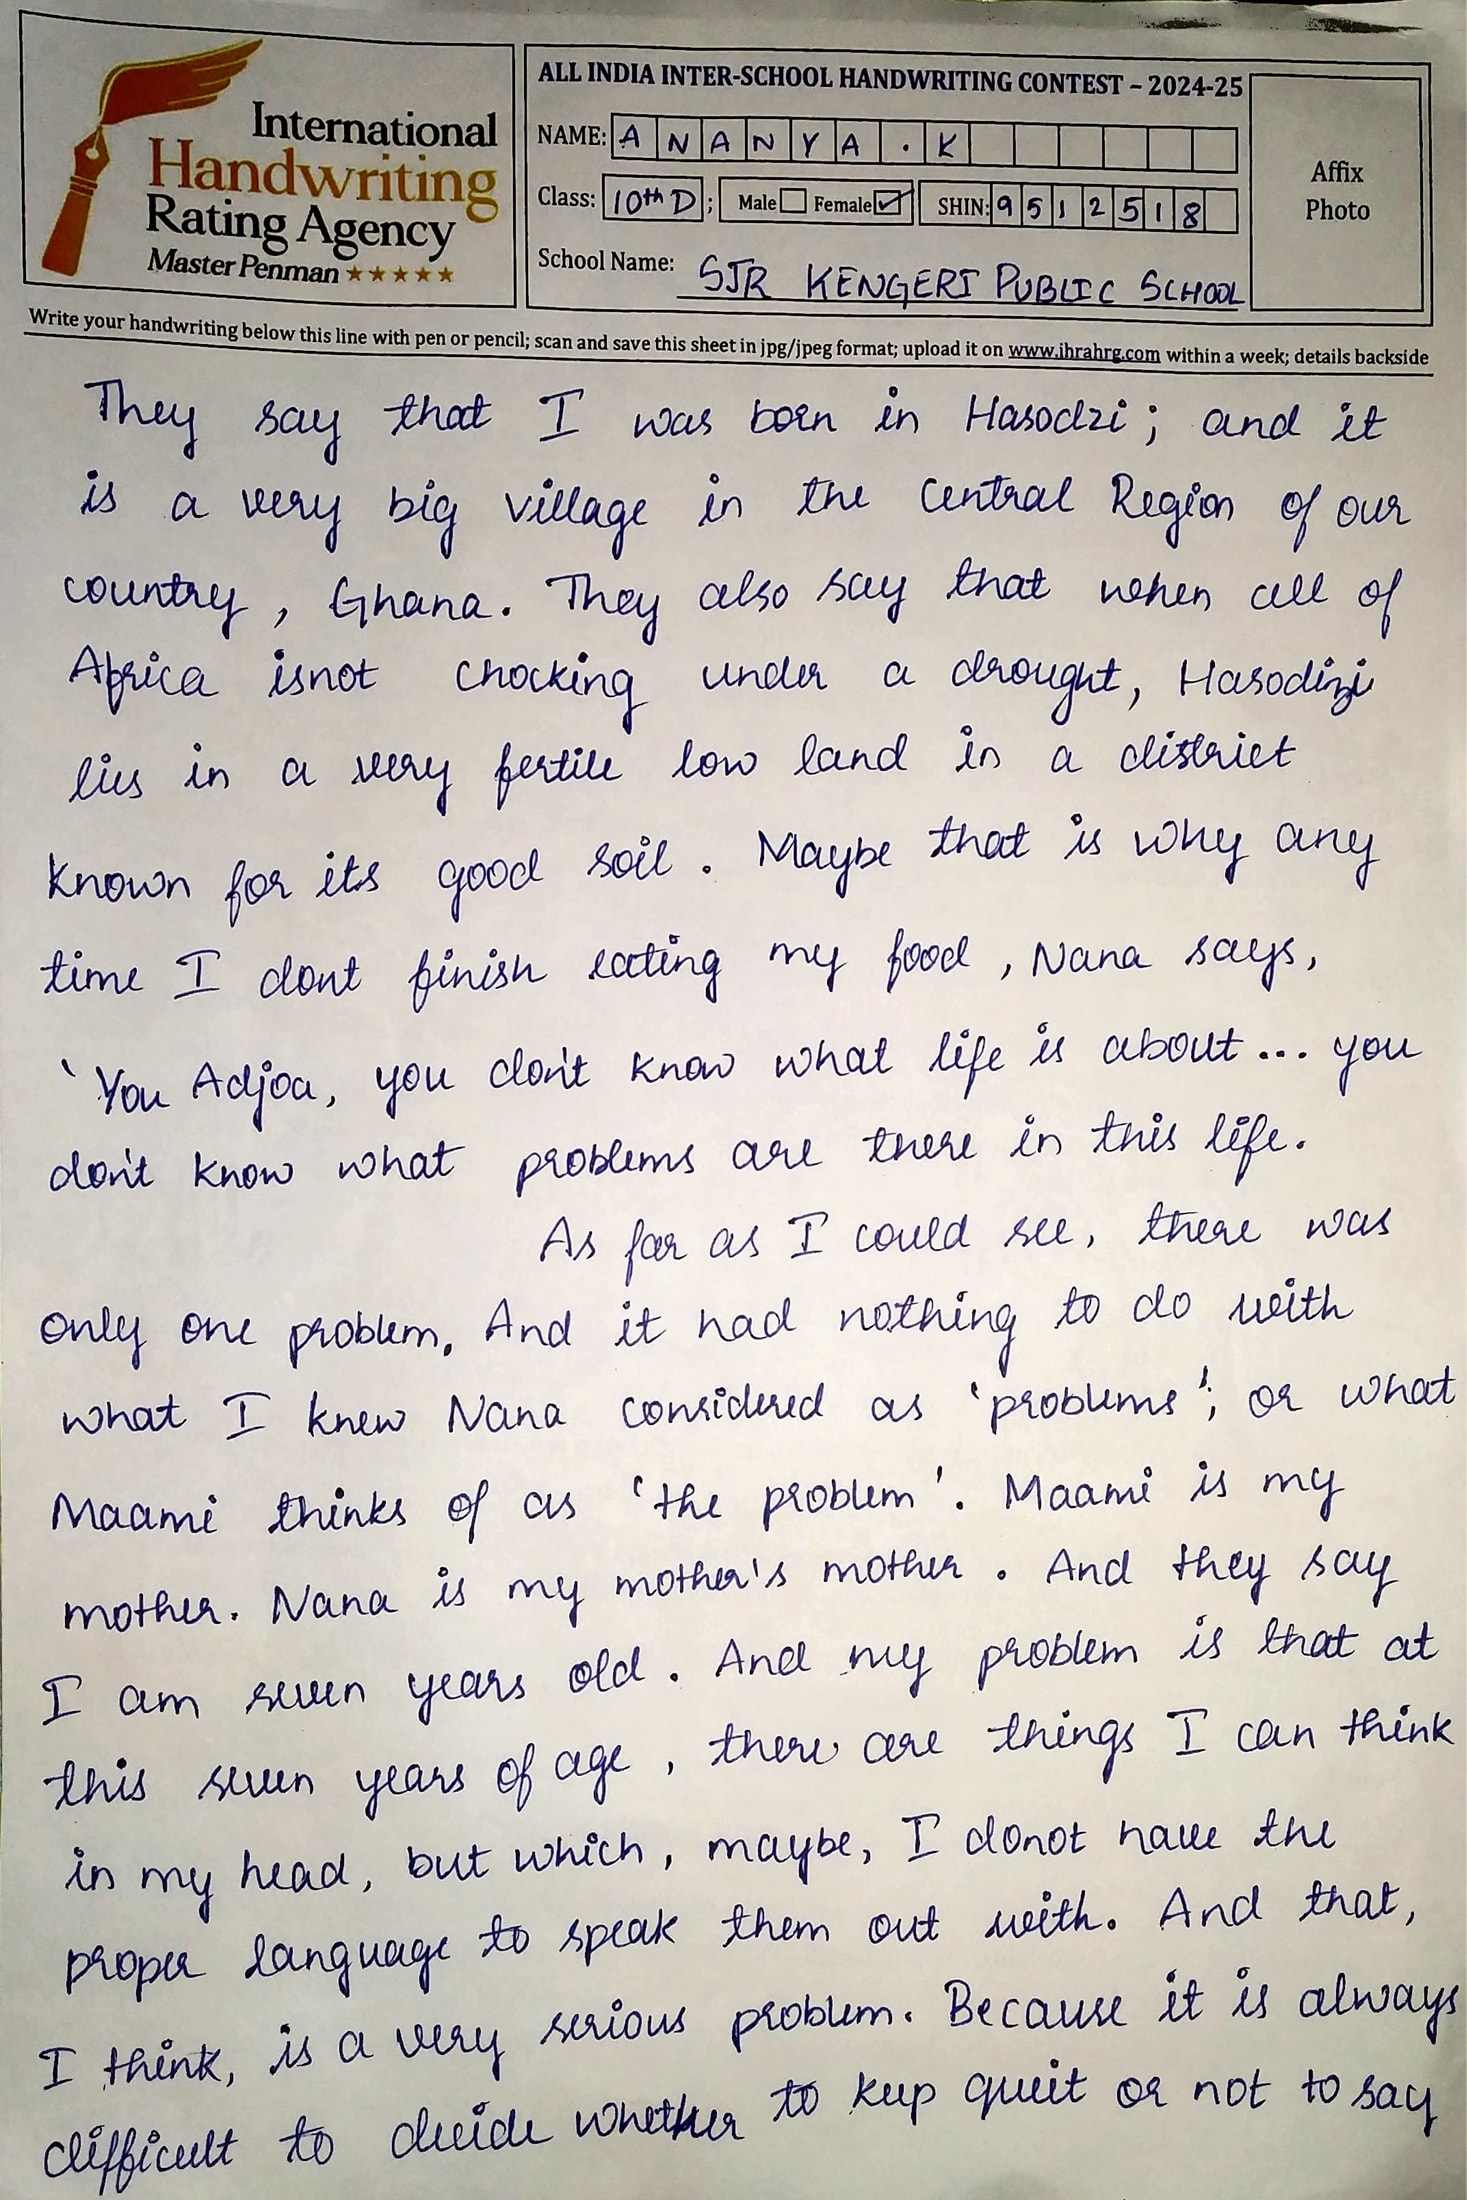 International
Handwriting
Rating Agency
Master Penman ★★★★★
ALL INDIA INTER-SCHOOL HANDWRITING CONTEST – 2024-25
NAME: ANANYA.K
Class: 10th D; Male ☐ Female ☑ SHIN: 9512518
School Name: SJR KENGERI PUBLIC SCHOOL
Affix
Photo
Write your handwriting below this line with pen or pencil; scan and save this sheet in jpg/jpeg format; upload it on www.ihrahrg.com within a week; details backside
They say that I was born in Hasodzi; and it
is a very big village in the Central Region of our
country, Ghana. They also say that when all of
Africa isnot chocking under a drought, Hasodizi
lies in a very fertile low land in a district
known for its good soil. Maybe that is why any
time I dont finish eating my food, Nana says,
'You Adjoa, you don't know what life is about... you
don't know what problems are there in this life.
As far as I could see, there was
only one problem. And it had nothing to do with
what I knew Nana considered as 'problems'; or what
Maami thinks of as 'the problem'. Maami is my
mother. Nana is my mother's mother. And they say
I am seven years old. And my problem is that at
this seven years of age, there are things I can think
in my head, but which, maybe, I donot have the
proper language to speak them out with. And that,
I think, is a very serious problem. Because it is always
difficult to decide whether to keep queit or not to say